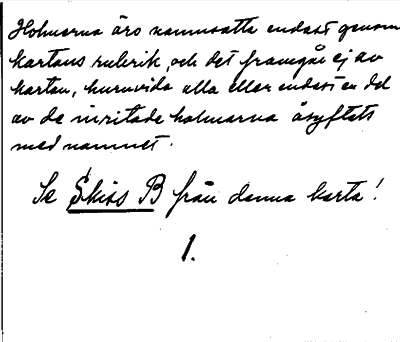 Holmarna äro namnsatta endast genom
kartans rubrik, och det framgår ej av
kartan, huruvida alla eller endast en del
av de inritade holmarna åsyftats
med namnet.
Se Skiss B från denna karta!
1.